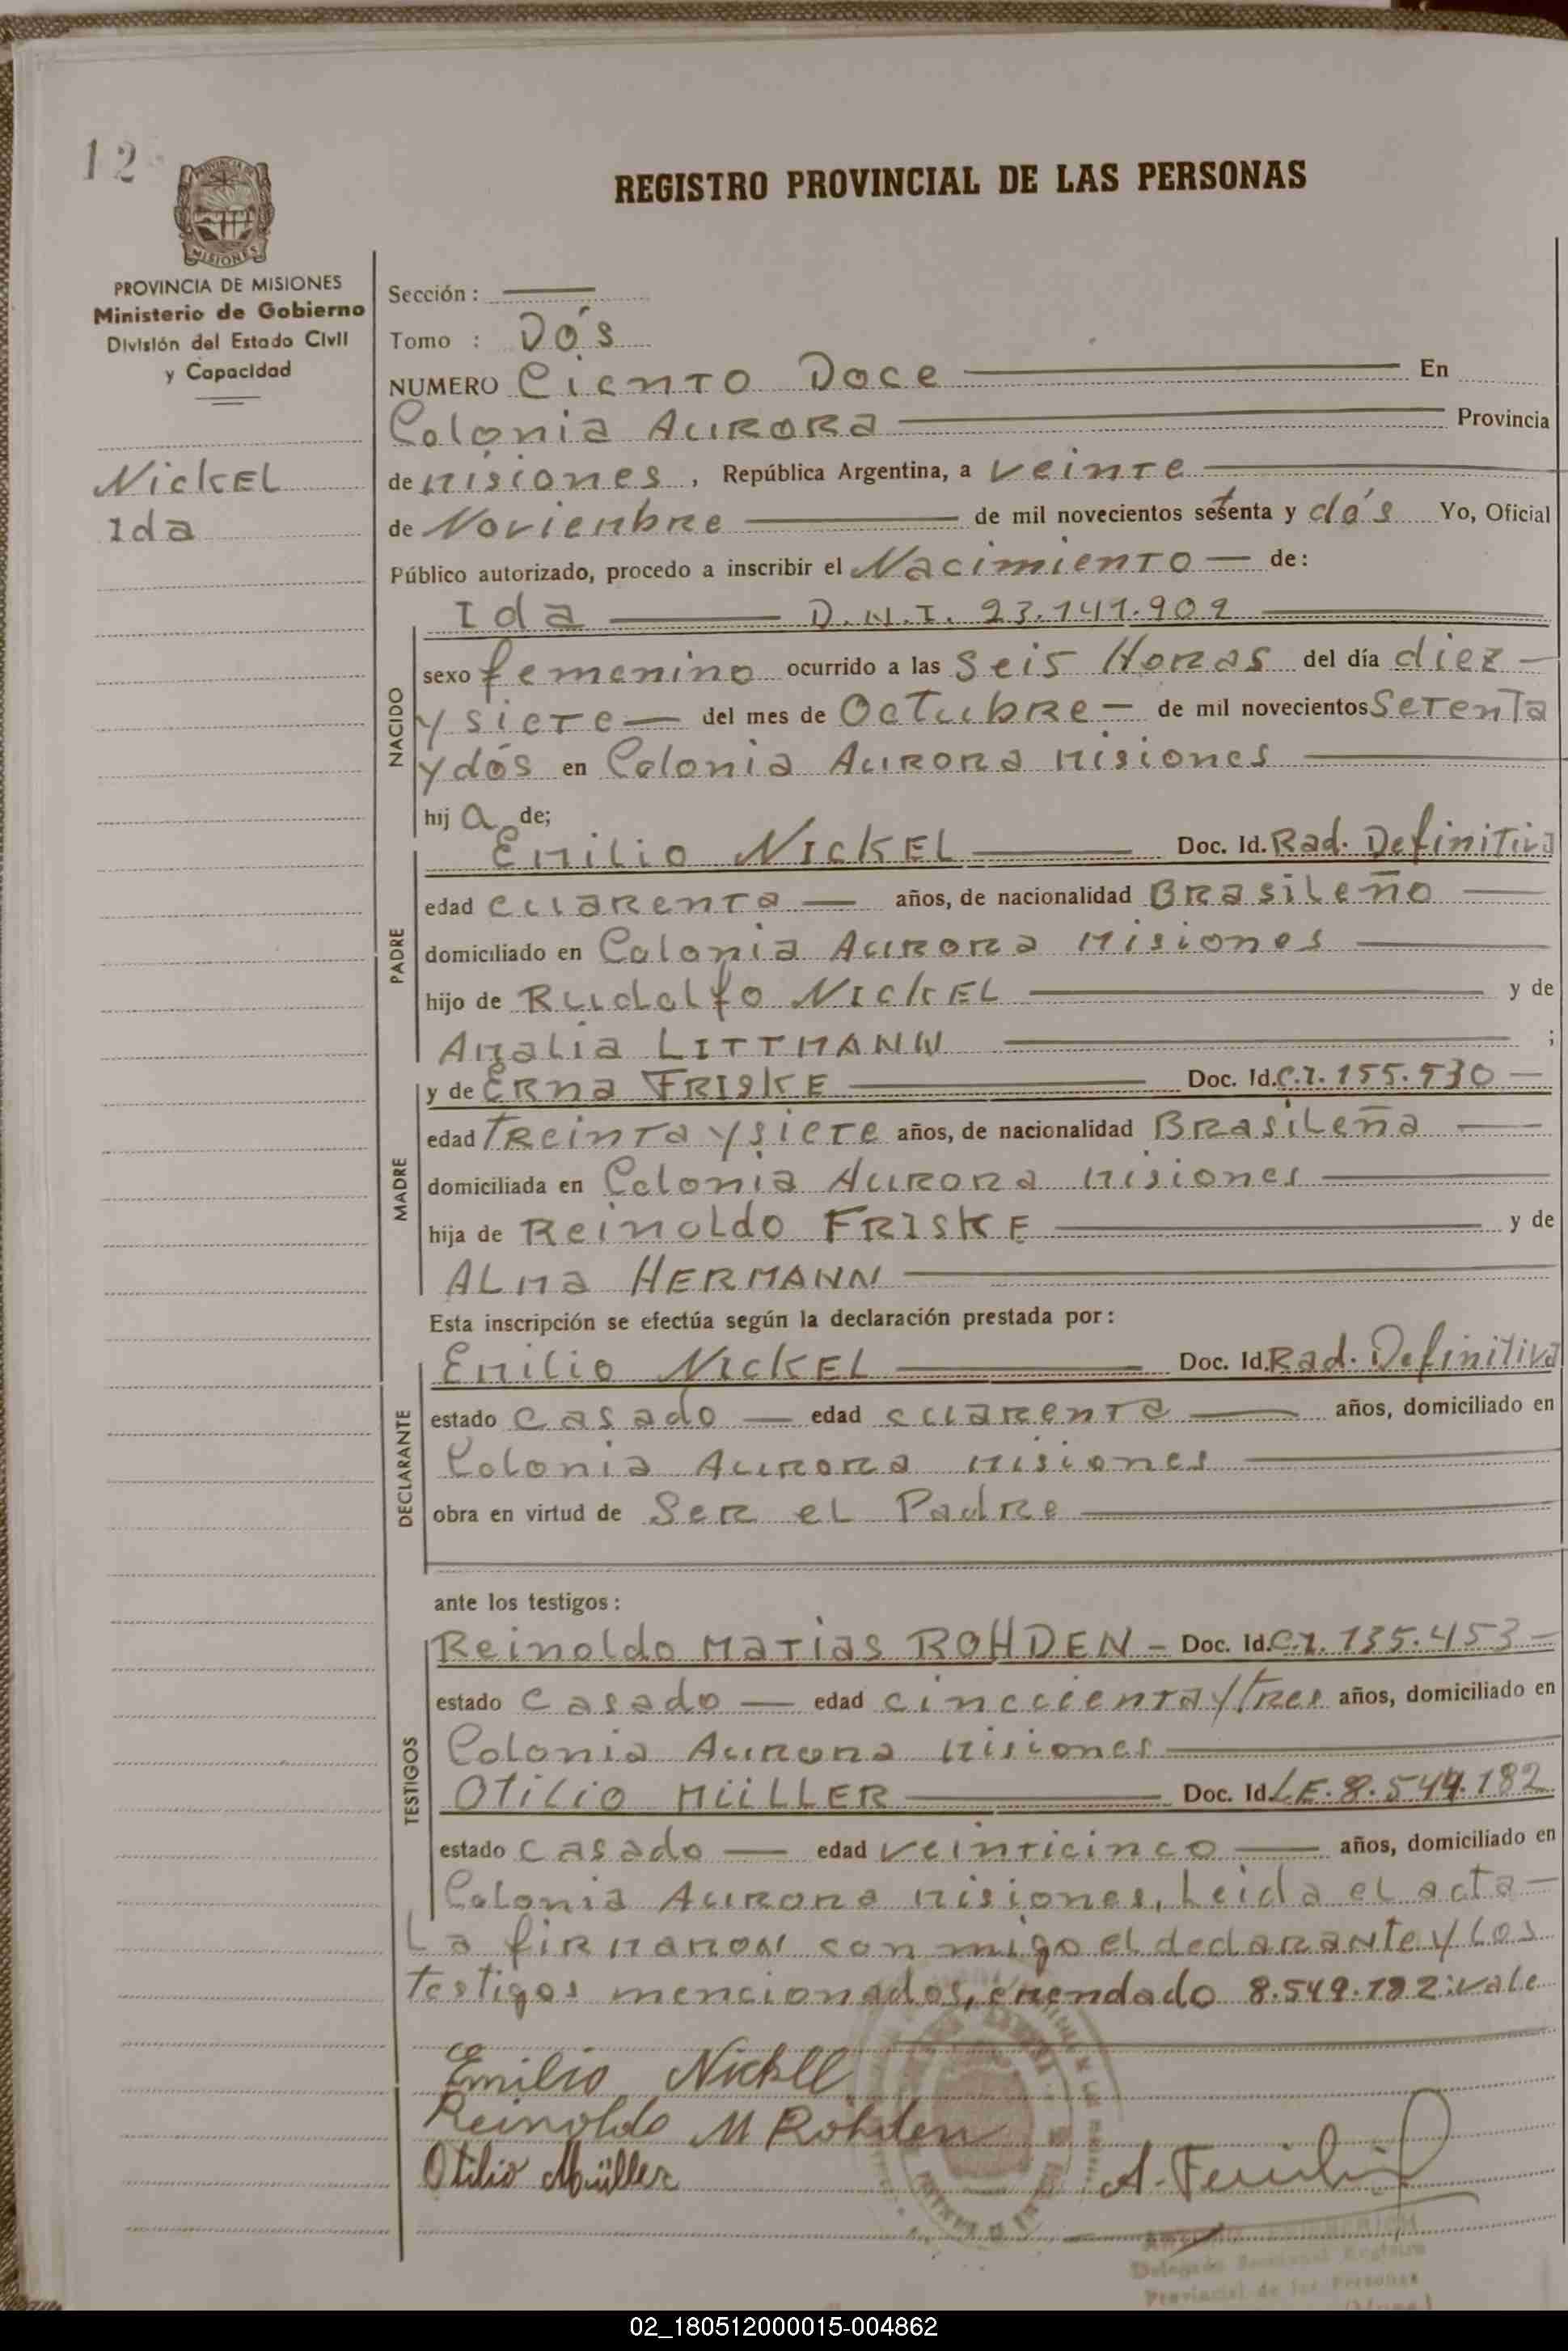 12
REGISTRO PROVINCIAL DE LAS PERSONAS
MISIONES
PROVINCIA DE MISIONES
Ministerio de Gobierno
División del Estado Civil
y Capacidad
Nickel
Ida
Sección :
Tomo : Dós
NUMERO Ciento Doce En
Colonia Aurora Provincia
de Misiones, República Argentina, a Veinte
de Noviembre de mil novecientos setenta y dós Yo, Oficial
Público autorizado, procedo a inscribir el Nacimiento de:
Ida D.N.I. 23.141.902
NACIDO
sexo femenino ocurrido a las seis Horas del día diez
y siete del mes de Octubre de mil novecientos Setenta
y dós en Colonia Aurora Misiones
hij a de;
PADRE
Emilio NICKEL Doc. Id. Rad. Definitiva
edad cuarenta años, de nacionalidad Brasileño
domiciliado en Colonia Aurora Misiones
hijo de Rudolfo NICKEL y de
Amalia LITTMANN ;
MADRE
y de Erna FRISKE Doc. Id. C.I. 155.530
edad treinta y siete años, de nacionalidad Brasileña
domiciliada en Colonia Aurora Misiones
hija de Reinoldo FRISKE y de
ALMA HERMANN
Esta inscripción se efectúa según la declaración prestada por:
DECLARANTE
Emilio NICKEL Doc. Id. Rad. Definitiva
estado casado edad cuarenta años, domiciliado en
Colonia Aurora Misiones
obra en virtud de Ser el Padre
ante los testigos:
TESTIGOS
Reinoldo Matias ROHDEN - Doc. Id. C.I. 135.453
estado casado edad cincuenta y tres años, domiciliado en
Colonia Aurora Misiones
Otilio MÜLLER Doc. Id. L.E. 8.549.182
estado casado edad veinticinco años, domiciliado en
Colonia Aurora Misiones, Leida el acta
La firmaron con migo el declarante y los
testigos mencionados, enmendado 8.549.182: vale
Emilio Nickell
Reinoldo M Rohden
Otilio Müller
Delegado Seccional Registro
Provincial de las Personas
02_180512000015-004862